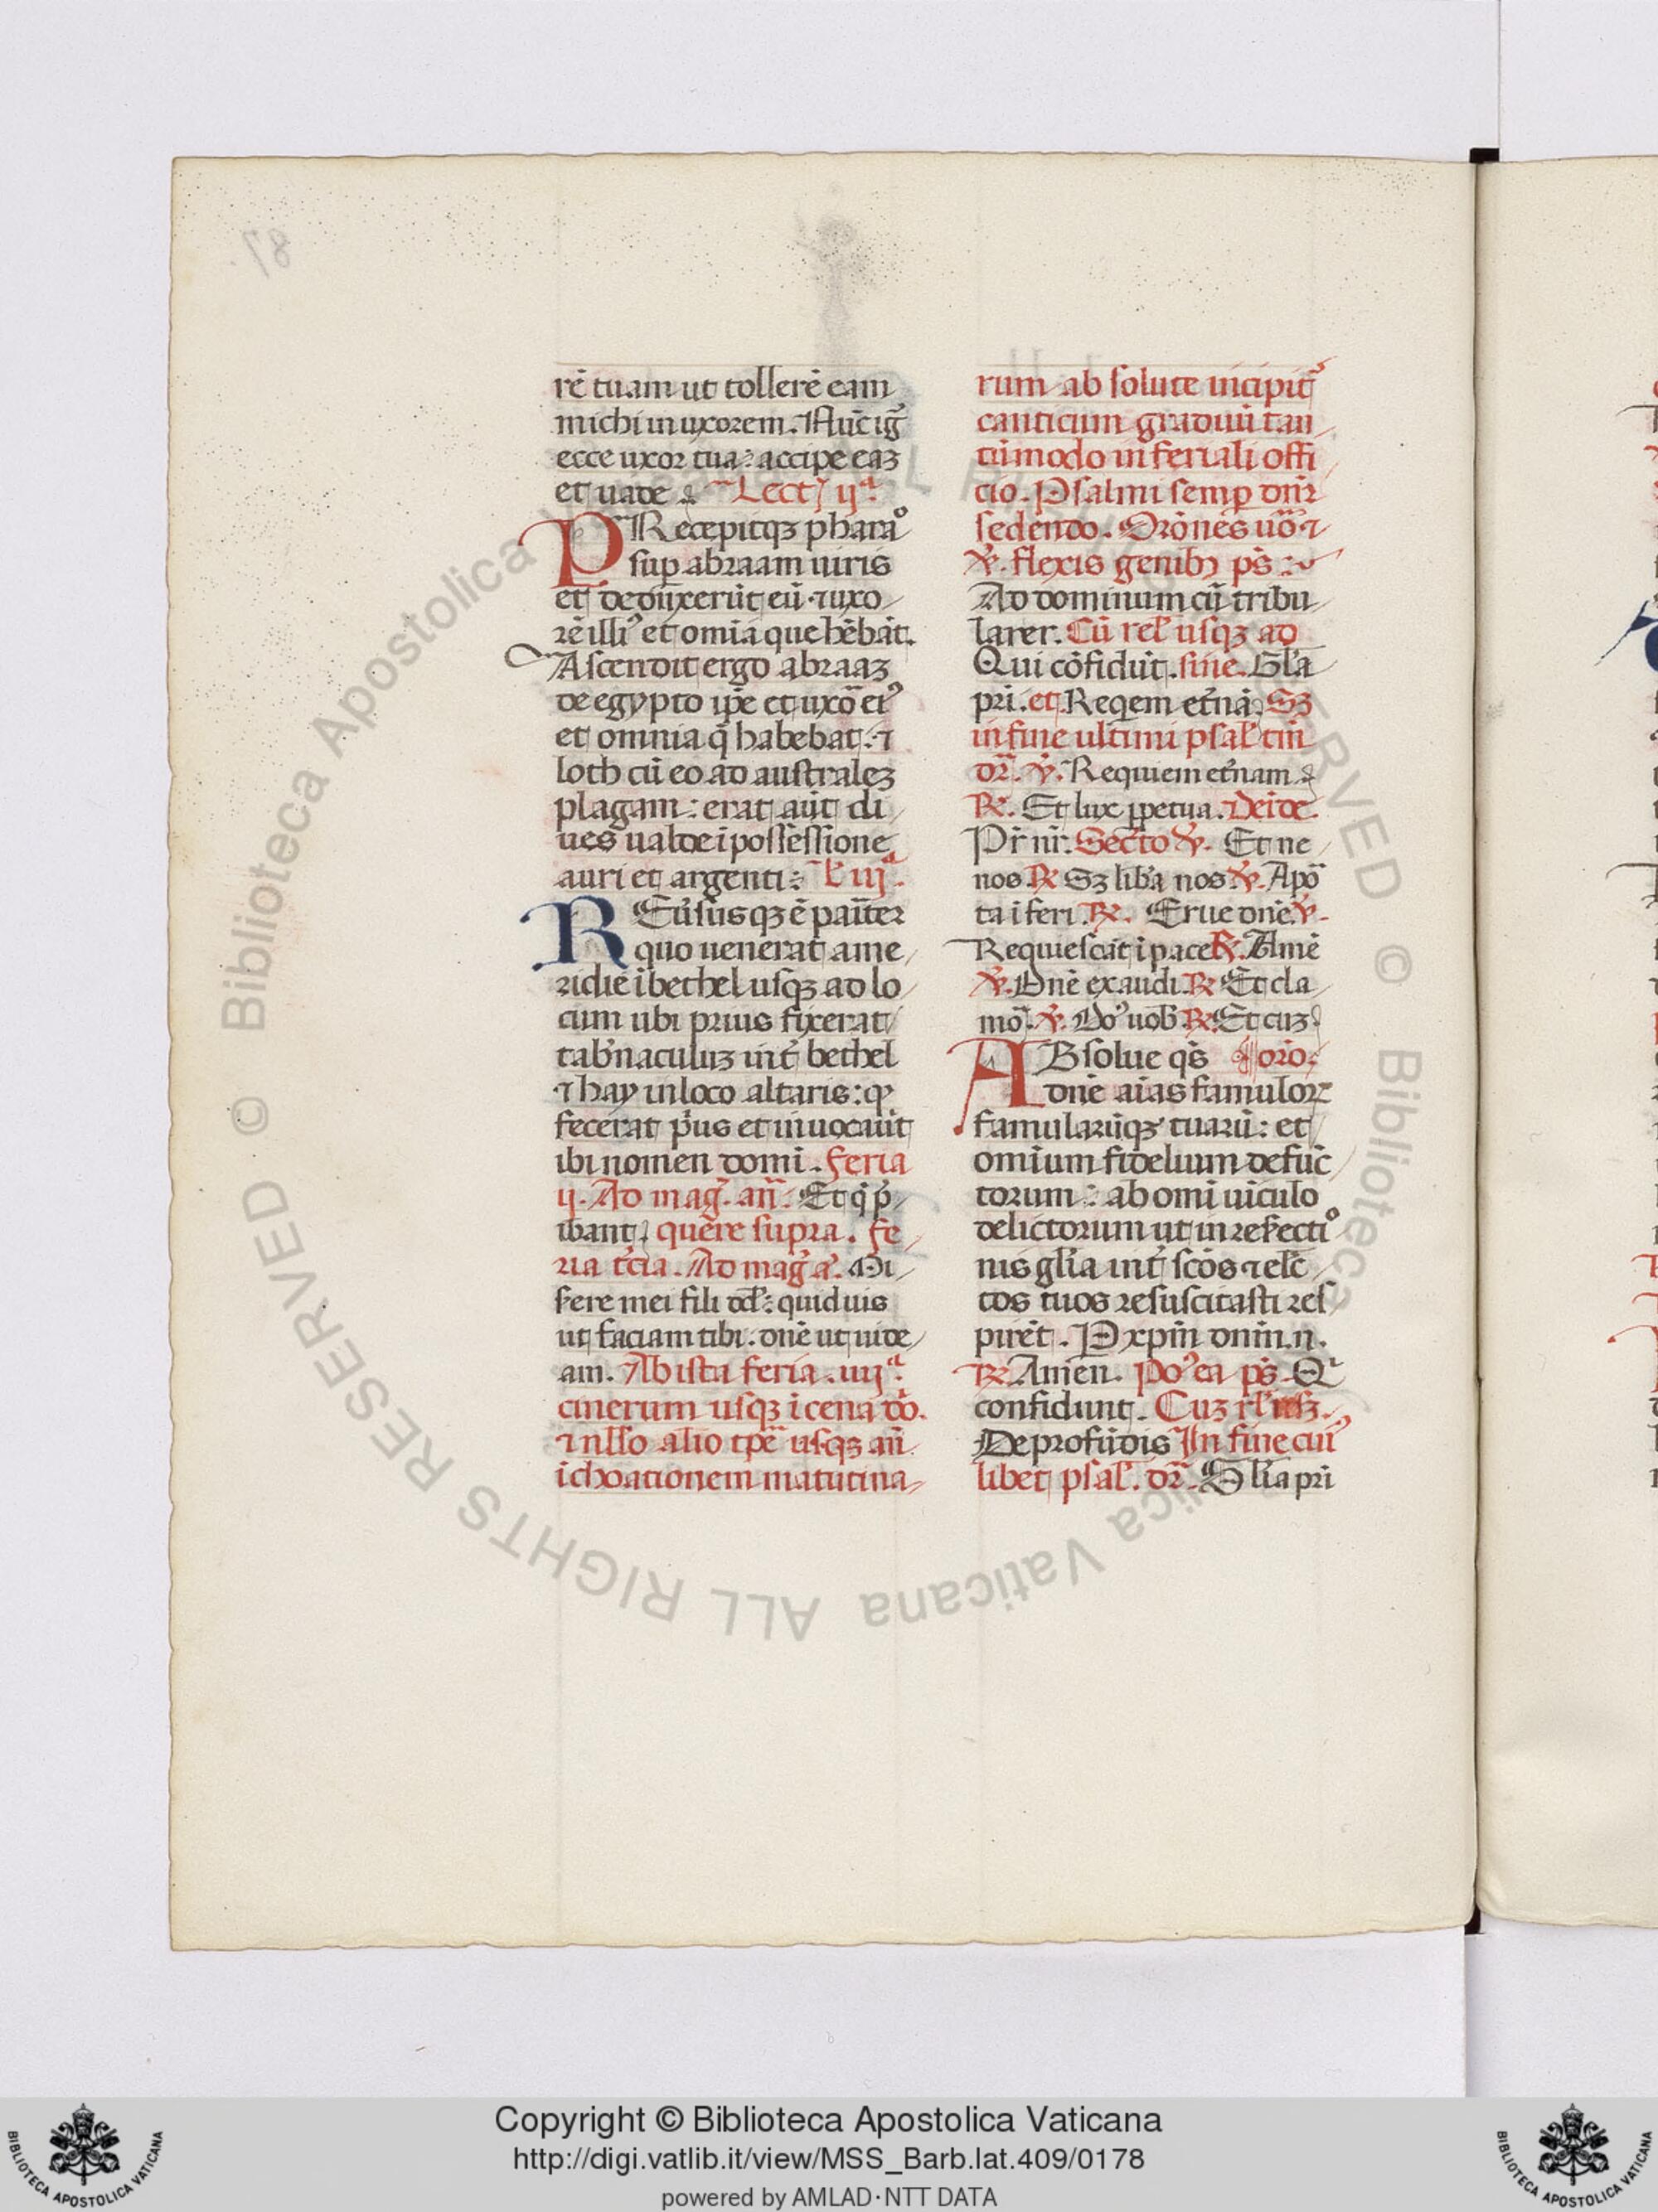 rē tuam ut tollerē eam
michi in uxorem. Nūc ig̃
ecce uxor tua: accipe eaz
et uade. Lect ijª.
PRecepitqꝫ pharaº
suꝑ abraam uiris
et deduxerūt eū ⁊ uxo
rē illiꝰ et omīa que hēbāt.
Ascendit ergo abraaz
de egypto ip̄e et uxō eiꝰ
et omnia q̄ habebat: ⁊
loth cū eo ad australez
plagam: erat aūt di
ues ualde i possessione
auri et argenti: L̄ iijª.
REuersusqꝫ ē pariter
quo uenerat a me
ridie i bethel usqꝫ ad lo
cum ubi prius fixerat
tab̄naculuz int̄ bethel
⁊ hay in loco altaris: qꝫ
fecerat pⁱus et inuocauit
ibi nomen domī. Feria
ij. Ad mag̃. an̄. Et q̇ p̄
ibant quēre supra. Fe
ria t̄cia. Ad mag̃ aª. Mi
serere mei fili dd̄: quid uis
ut faciam tibi. dn̄e ut uide
am. Ab ista feria. iiijª.
cinerum usqꝫ i cena dō.
⁊ nllo alio tp̄e usqꝫ an̄
ichoationem matutina
rum ab solute incipit̄
canticum graduū tan
tūmodo in feriali offi
cio. Psalmi semꝑ dn̄r
sedendo. Orōnes uō ⁊
℣. flexis genibꝫ pṡ:
Ad dominum cū tribu
larer. Cū rel̄ usqꝫ ad
Qui cōfidūt. sine. Gl̄a
pri. et. Reqem et̄nā. Sꝫ
in fine ultimi psal̄ tm̄
dr̄. ℣. Requiem et̄nam
℟. Et lux ꝑpetua. ⁊ Deīde.
Pr̄ nr̄. Secr̄to ℣. Et ne
nos ℟ Sꝫ lib̄a nos ℣. Apō
ta iferi. ℟. Erue dn̄e ℣.
Requiescāt i pace ℟. Amē
℣. Dn̄e exaudi ℟ Et cla
mō. ℣. Dōꝰ uob̄ ℟ Et cuz
ABsolue qṡ oro.
dn̄e aīas famuloꝝ
famularūqꝫ tuarū: et
omium fidelium defūc
torum: ab omi uīculo
delictorum ut in resurrectiº
nis gl̄ia int̄ scōs ⁊ elc̄
tos tuos resuscitasti res
pirēt. P xp̄m dnm̄. n.
℟ Amen. Poꝰea pṡ Qⁱ
confidunt. Cuz
De profūdis In fine cui
libet psal̄. dr̄. Gl̄ia pri
Copyright © Biblioteca Apostolica Vaticana
http://digi.vatlib.it/view/MSS_Barb.lat.409/0178
powered by AMLAD·NTT DATA